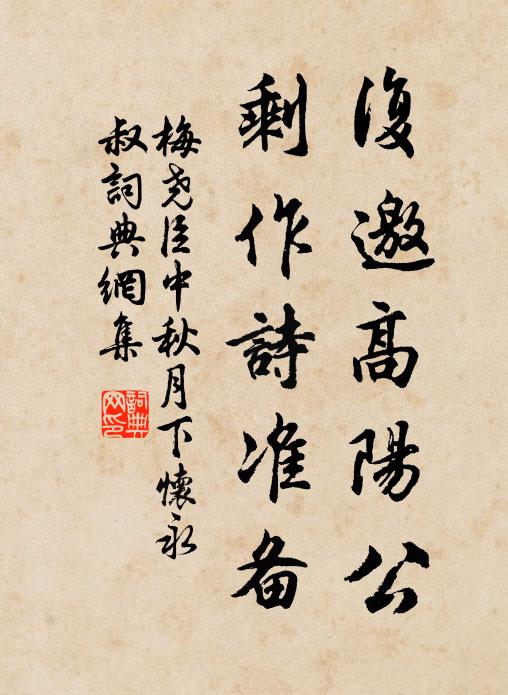 復邀高陽公
剩作詩准备
梅尧臣中秋月下懷永
叔詞典網集
詞典
网印